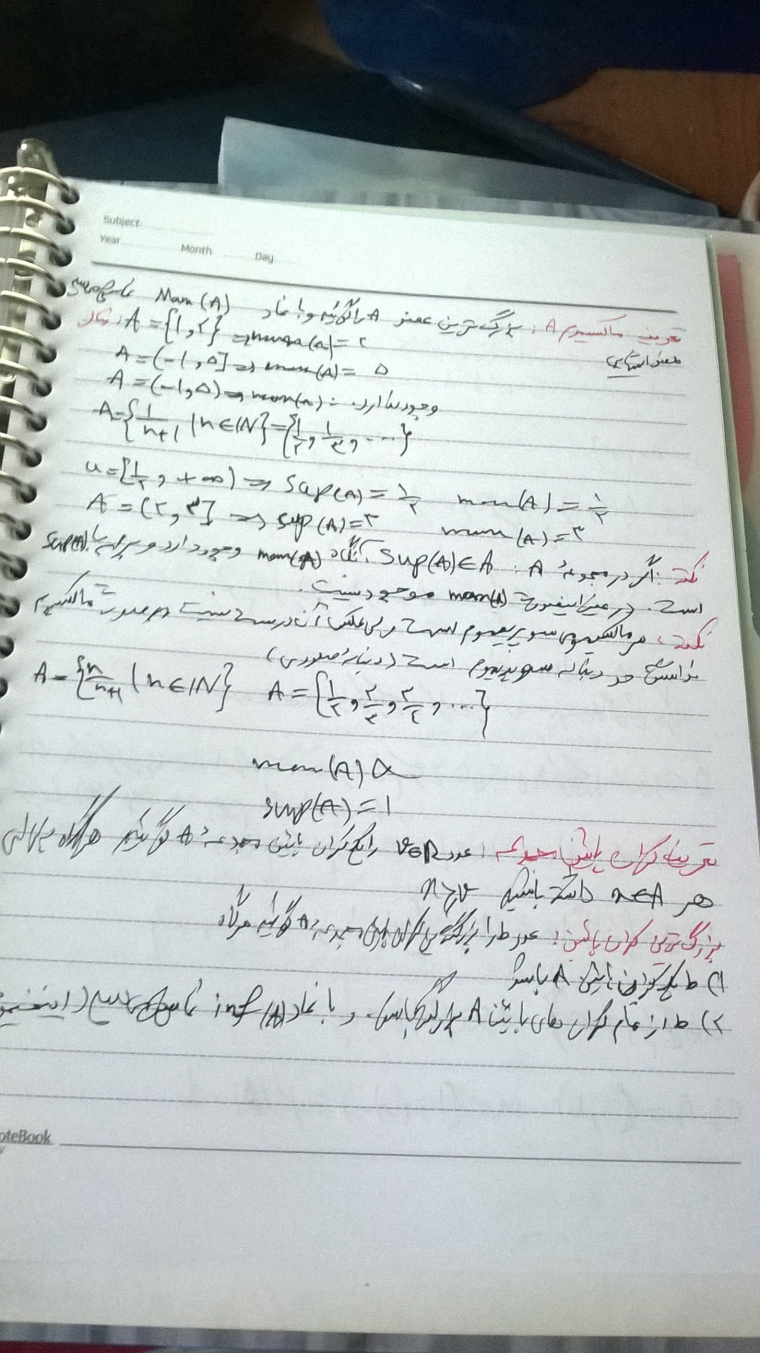 Subject:
Year Month Day
تعریف ماکسیمم A: بزرگ‌ترین عضو A را گوییم و با نماد Max(A) نمایش
مثال: A = {1,2} ⇒ max(A) = 2
A = (-1, 5] ⇒ max(A) = 5
A = (-1, 5) ⇒ max(A) : وجود ندارد
A = {1/(n+1) | n∈IN} = {1/2, 1/3, ...}
u = [1/2, +∞) ⇒ sup(A) = 1/2 max(A) = 1/2
A = (2, 3] ⇒ sup(A) = 3 max(A) = 3
نکته: اگر در مجموعه A، Sup(A)∈A آنگاه max(A) وجود دارد و برابر با Sup(A)
است. در غیر اینصورت max(A) موجود نیست.
نکته: هر ماکسیمم سوپریمم است ولی عکس آن درست نیست
A = {n/(n+1) | n∈IN} A = {1/2, 2/3, 3/4, ...}
max(A)
sup(A) = 1
تعریف کران پائین مجموعه: عدد v∈R را یک کران پائین مجموعه A گوئیم هرگاه برای
هر x∈A داشته باشیم
بزرگ‌ترین کران پائین: عدد t را بزرگترین کران پائین مجموعه A گوئیم هرگاه
1) t یک کران پائین A باشد
2) t از تمام کران های پائین A بزرگتر باشد و با نماد inf(A) نمایش
NoteBook